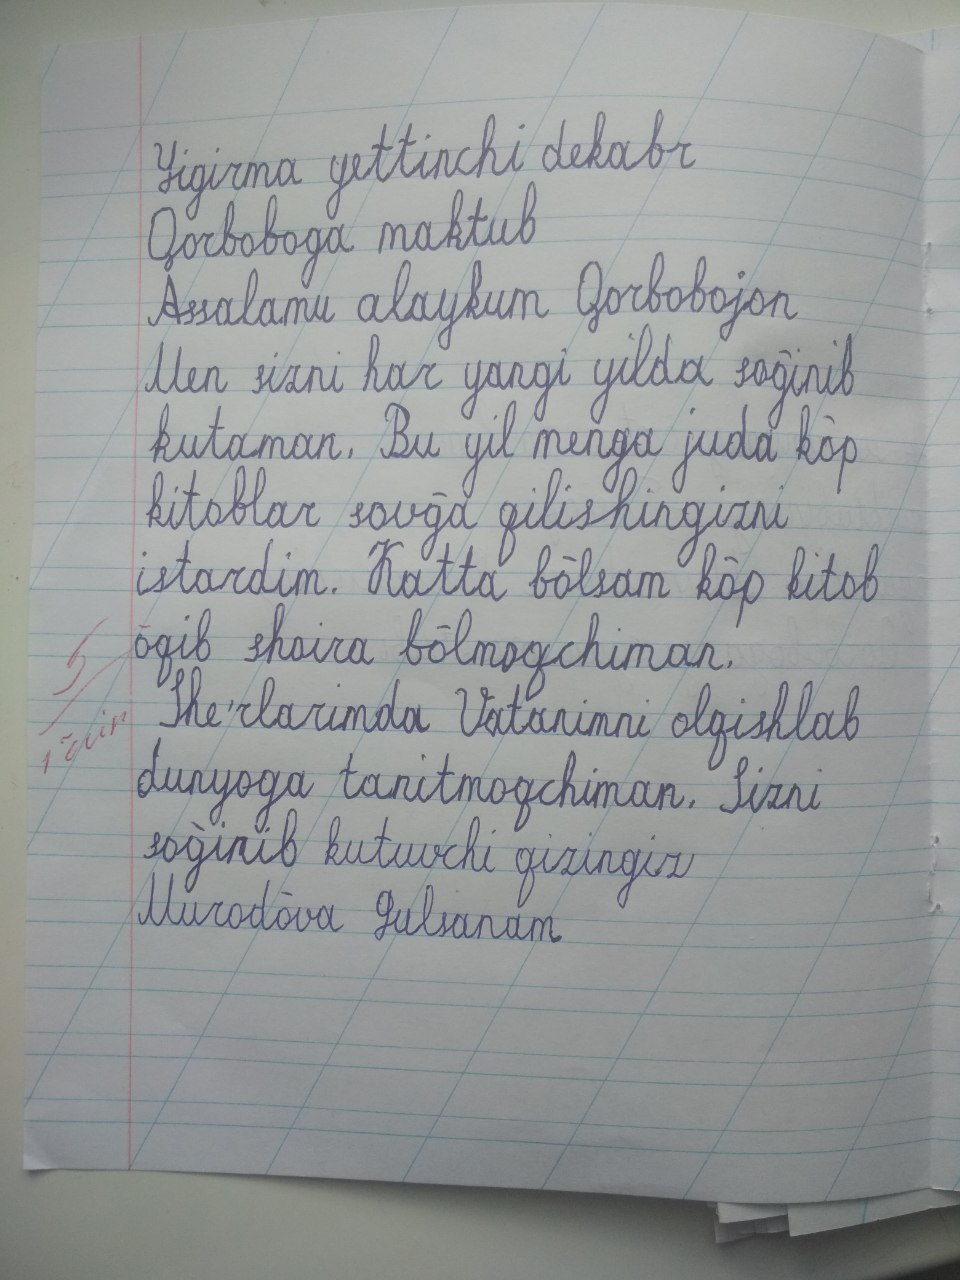 Yigirma yettinchi dekabr
Qorboboga maktub
Assalamu alaykum Qorbobojon
Men sizni har yangi yilda sōg̀inib
kutaman. Bu yil menga juda kōp
kitoblar sovḡa qilishingizni
istardim. Katta bōlsam kōp kitob
ōqib shoira bōlmoqchiman.
She'rlarimda Vatanimni olqishlab
dunyoga tanitmoqchiman. Sizni
sog̀inib kutuvchi qizingiz
Murodōva Gulsanam
5